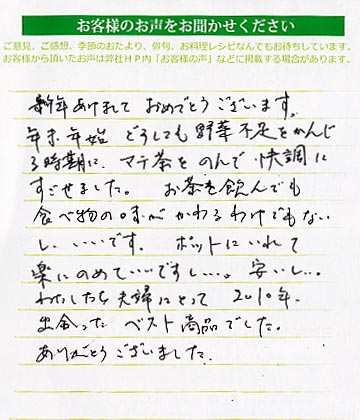 お客様のお声をお聞かせください
ご意見、ご感想、季節のおたより、俳句、お料理レシピなんでもお待ちしています。
お客様から頂いたお声は弊社HP内「お客様の声」などに掲載する場合があります。
新年あけまして おめでとうございます。
年末年始 どうしても野菜不足をかんじ
る時期に、マテ茶をのんで快調に
すごせました。 お茶を飲んでも
食べ物の味がかわるわけでもない
し、いいです。 ポットにいれて
楽にのめていいですし…。安いし…
わたしたち夫婦にとって 2010年、
出会った ベスト商品でした。
ありがとうございました。